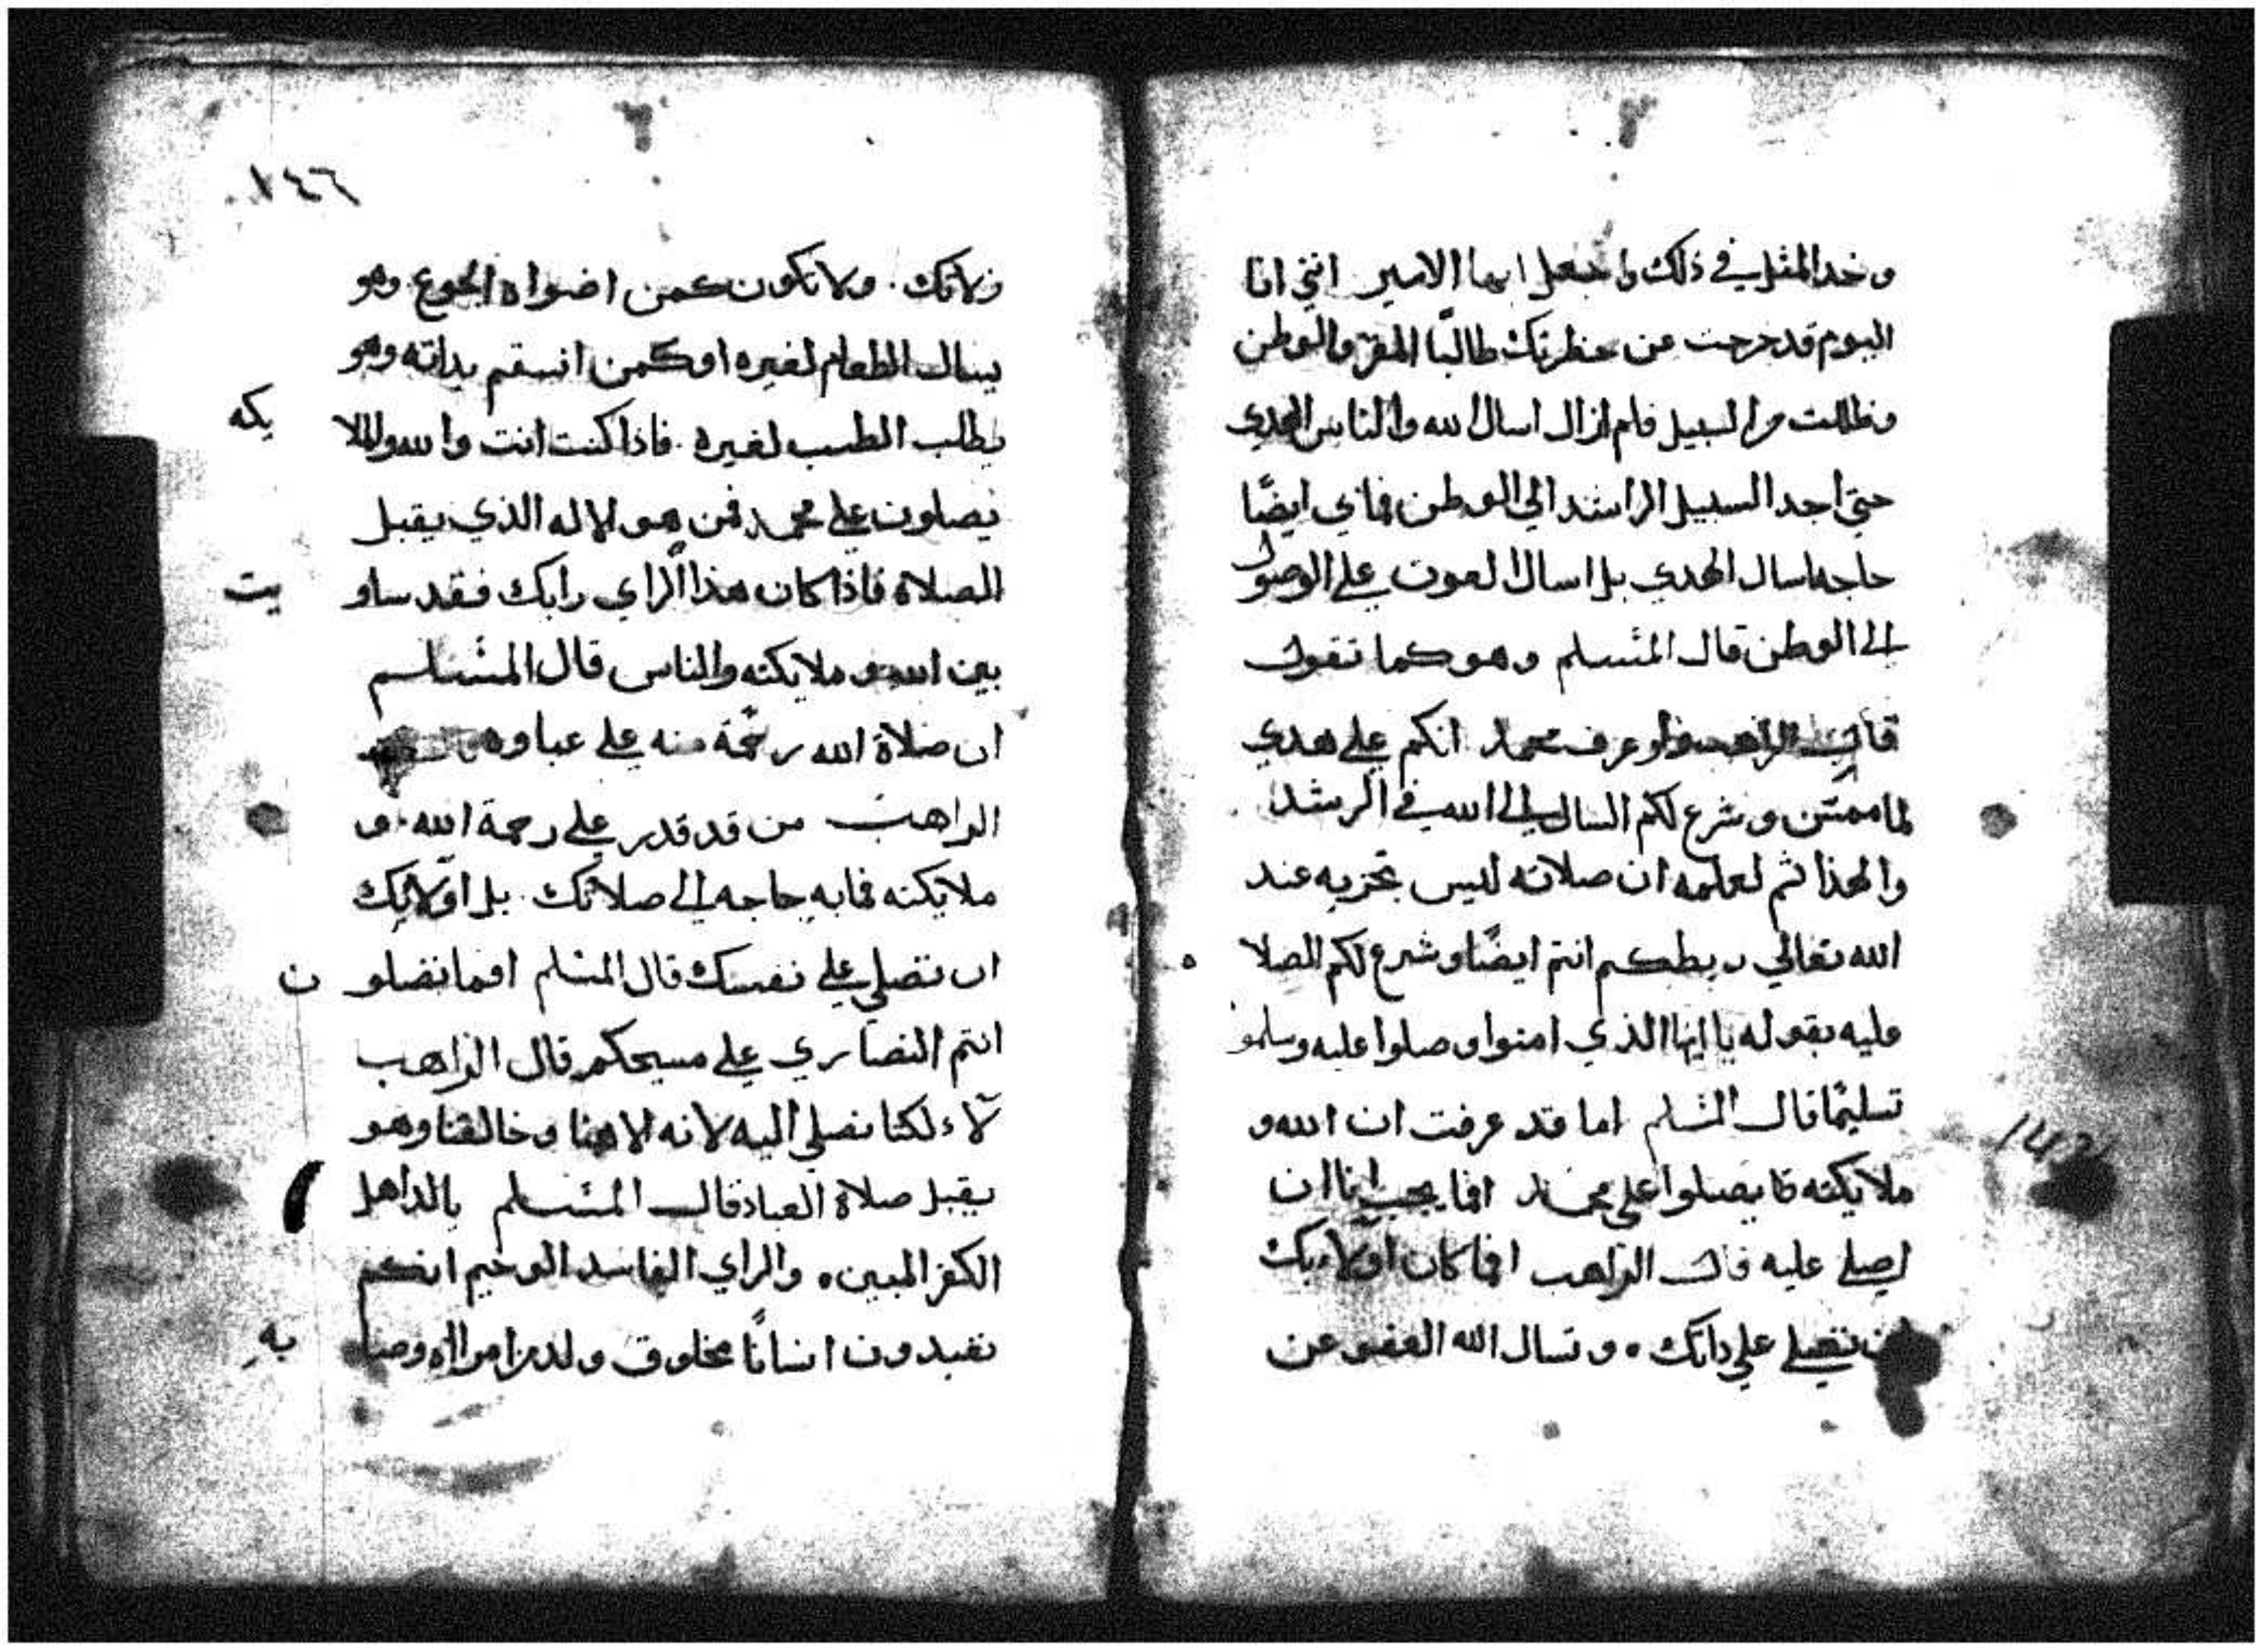 وخد المثل في ذلك واجعل ايها الامير انني انا
اليوم قد خرجت من حظرتك طالبًا المقر والوطن
وظللت السبيل فلم ازال اسال الله والناس الهدي
حتي اجد السبيل الراشد الي الوطن فما بي ايضًا
حاجه اسال الهدي بل اسال العون علي الوصول
الي الوطن قال المسلم وهو كما تقول
قال الراهب ولو عرف محمد انكم علي هدي
وشرع لكم السال الي الله في الرشد
والهذا ثم لعلمه ان صلاته ليس تجزيه عند
الله تعالي ربطكم انتم ايضًا وشرع لكم الصلا ه
عليه بقوله يا ايها الذي امنوا صلوا عليه وسلمو
تسليمًا قال المسلم اما قد عرفت ان الله و
ملايكته يصلوا علي محمد افما يجب ان
اصلي عليه قال الراهب افما كان اولا بك
ان تصلي علي داتك ه وتسال الله العفو عن
١٤٦
زلاتك. ولا تكون كمن اضواه الجوع وهو
يسال الطعام لغيره او كمن انسقم بداته وهو
يطلب الطبيب لغيره. فاذا كنت انت والله والملا يكه
يصلون علي محمد فمن هو الاله الذي يقبل
الصلاة فاذا كان هذا الراي رايك فقد ساو يت
بين الله وملايكته والناس قال المسلم
ان صلاة الله رحمة منه علي عباده
الراهب من قد قدر علي رحمة الله. و
ملايكته فما به حاجه الي صلاتك. بل اولا بك
ان تصلي علي نفسك قال المسلم افما تصلو ن
انتم النصاري علي مسيحكم قال الراهب
لاء لكنا نصلي اليه لانه الاهنا وخالقنا وهو
يقبل صلاة العباد قال المسلم
الكفر المبين ه والراي الفاسد الوخيم انكم
تعبدون انسانًا مخلوق ولد من امراه